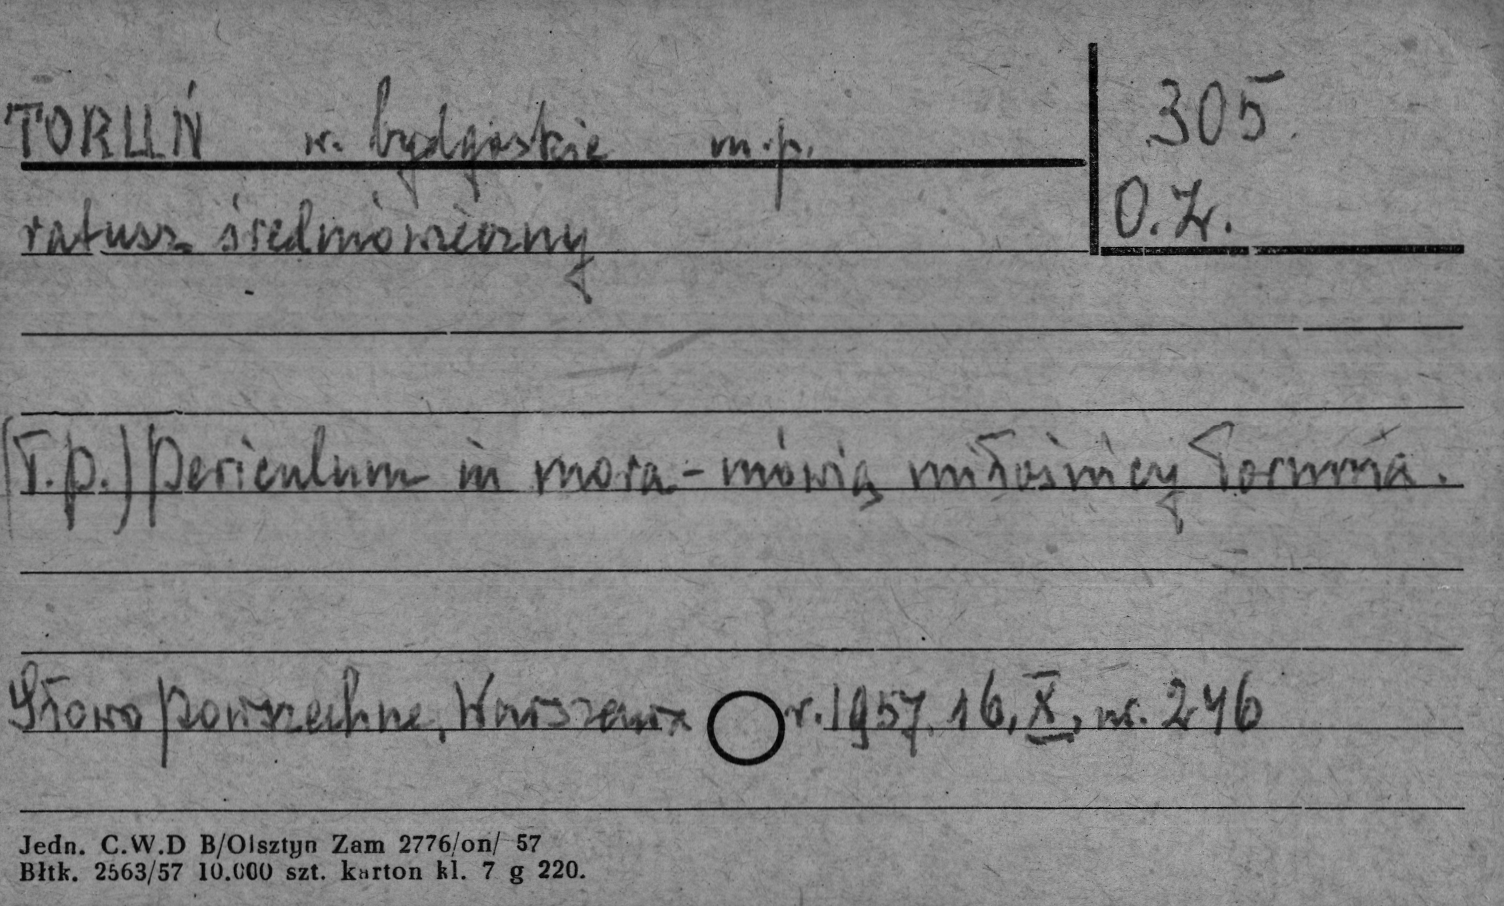 TORUŃ w. bydgoskie m.p.
305.
ratusz średniowieczny
O.Zr.
(T.p.) Periculum in mora - mówią miłośnicy Torunia.
Słowo Powszechne, Warszawa r. 1957. 16, X, nr. 246
Jedn. C.W.D B/Olsztyn Zam 2776/on/ 57
Błtk. 2563/57 10.000 szt. karton kl. 7 g 220.